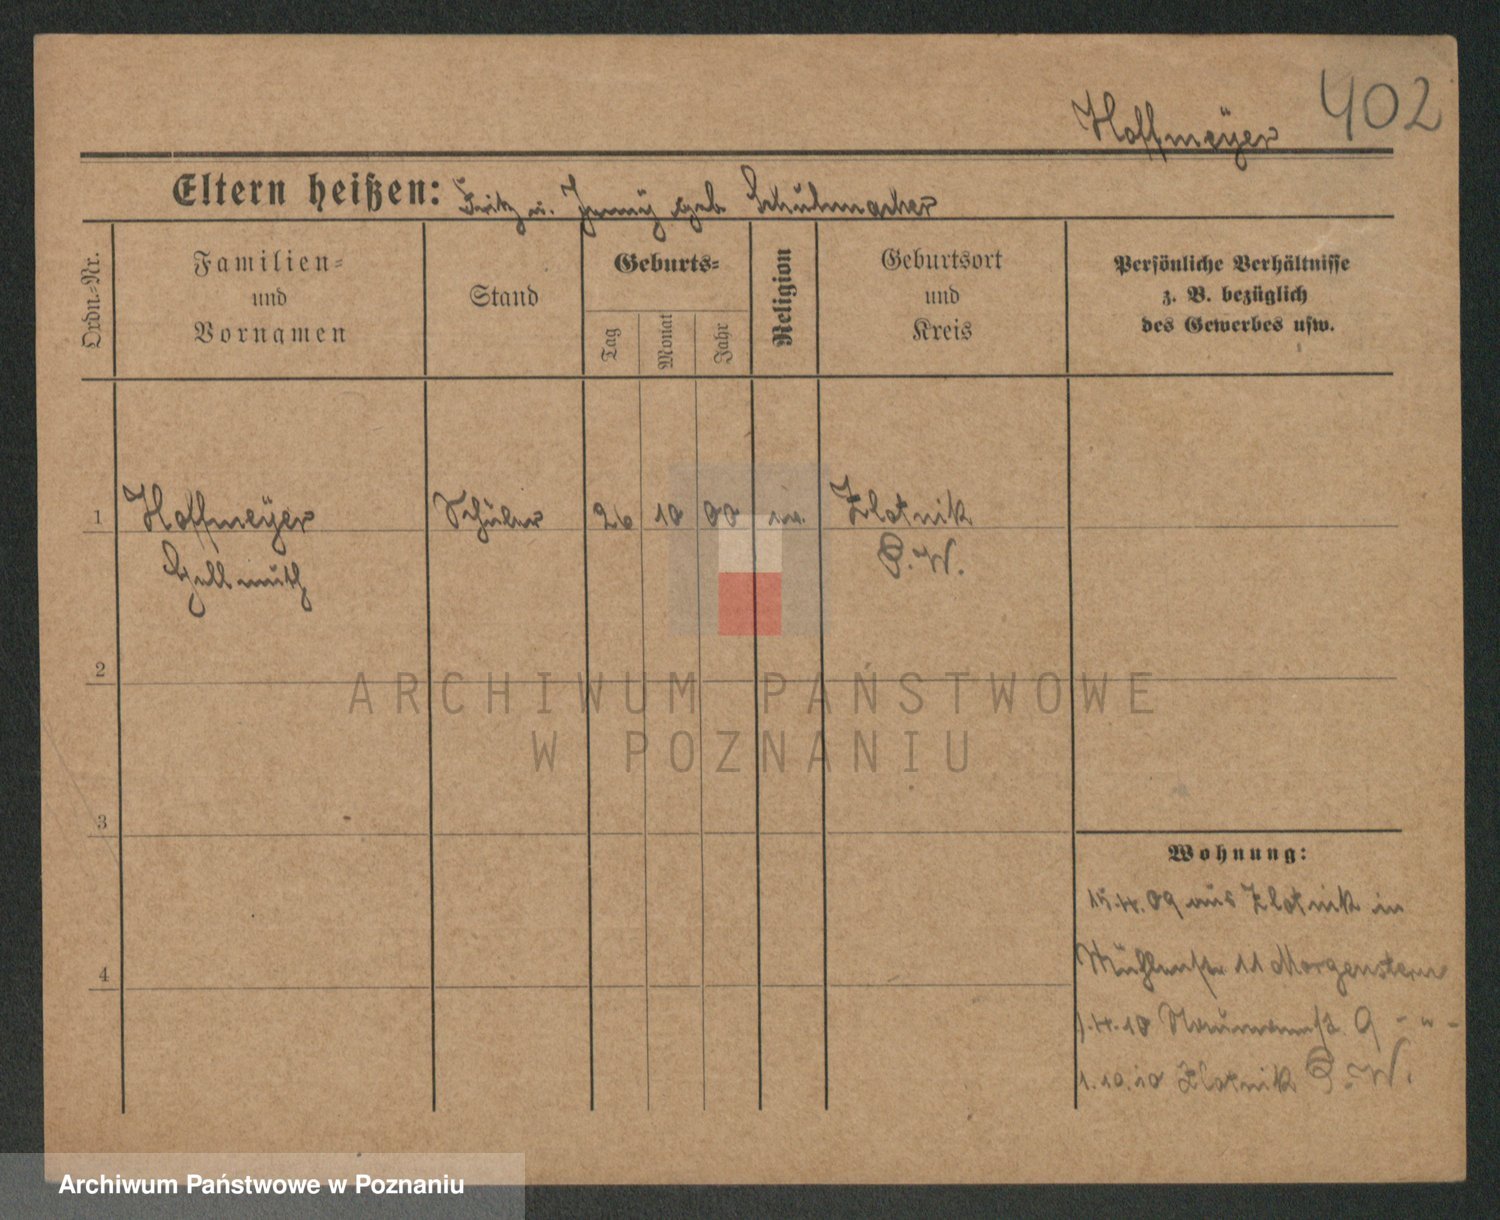 402
Hoffmeÿer
Eltern heißen: Fritz u. Jenny geb. Schuhmacher
Ordn.-Nr.
Familien-
und
Vornamen
Stand
Geburts-
Tag
Monat
Jahr
Religion
Geburtsort
und
Kreis
Persönliche Verhältnisse
z. B. bezüglich
des Gewerbes usw.
1 Hoffmeÿer Schüler 26 10 00 ev. Zlotnik
Hellmuth P.W.
2
3
4
Wohnung:
15.4.09 aus Zlotnik in
Mühlenstr 11 Morgenstern
1.4.10 Naumannstr. 9 - " -
1.10.10 Zlotnik P.W.
ARCHIWUM PAŃSTWOWE
W POZNANIU
Archiwum Państwowe w Poznaniu